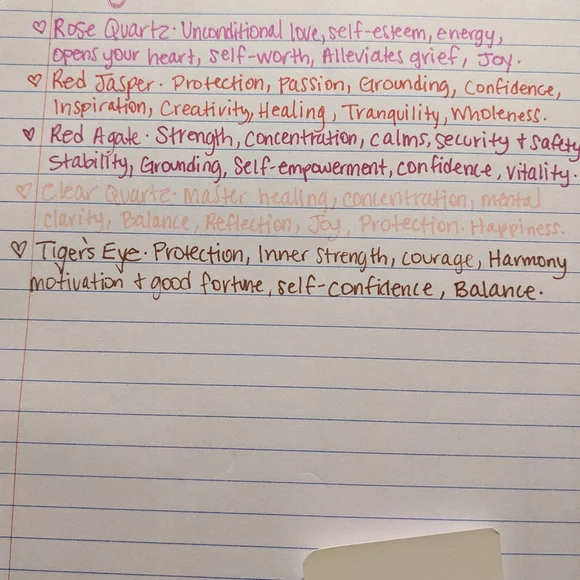 ♡ Rose Quartz · Unconditional love, self-esteem, energy,
opens your heart, self-worth, Alleviates grief, Joy.
♡ Red Jasper · Protection, Passion, Grounding, Confidence,
Inspiration, Creativity, Healing, Tranquility, Wholeness.
♡ Red Agate · Strength, concentration, calms, security + safety
Stability, Grounding, Self-empowerment, confidence, vitality.
♡ Clear Quartz · Master healing, concentration, mental
clarity, Balance, Reflection, Joy, Protection. Happiness.
♡ Tiger's Eye · Protection, Inner strength, courage, Harmony
motivation + good fortune, self-confidence, Balance.